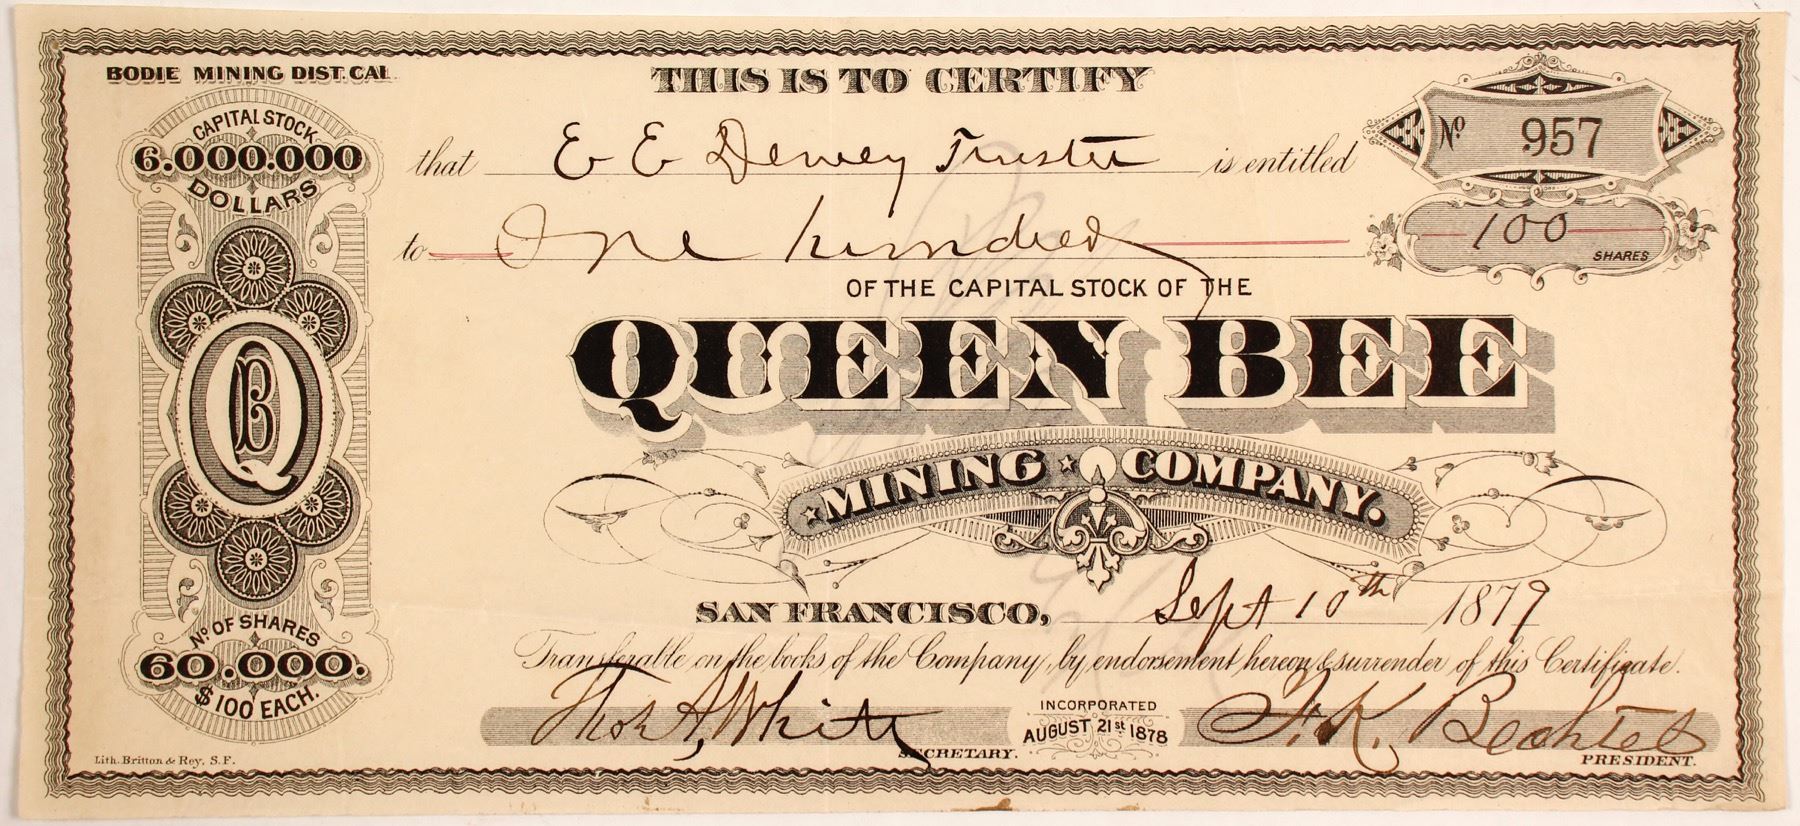 BODIE MINING DIST. CAL.
THIS IS TO CERTIFY
CAPITAL STOCK
6.000.000
DOLLARS
that E E Dewey Trustee is entitled
No 957
to One hundred
100 SHARES
OF THE CAPITAL STOCK OF THE
QUEEN BEE
QB
MINING COMPANY.
SAN FRANCISCO, Sept 10th 1879
No OF SHARES
60.000.
$100 EACH.
Transferable on the books of the Company, by endorsement hereon & surrender of this Certificate.
Thos A, White
SECRETARY.
INCORPORATED
AUGUST 21st 1878
F. K. Bechtel
PRESIDENT.
Lith. Britton & Rey, S.F.